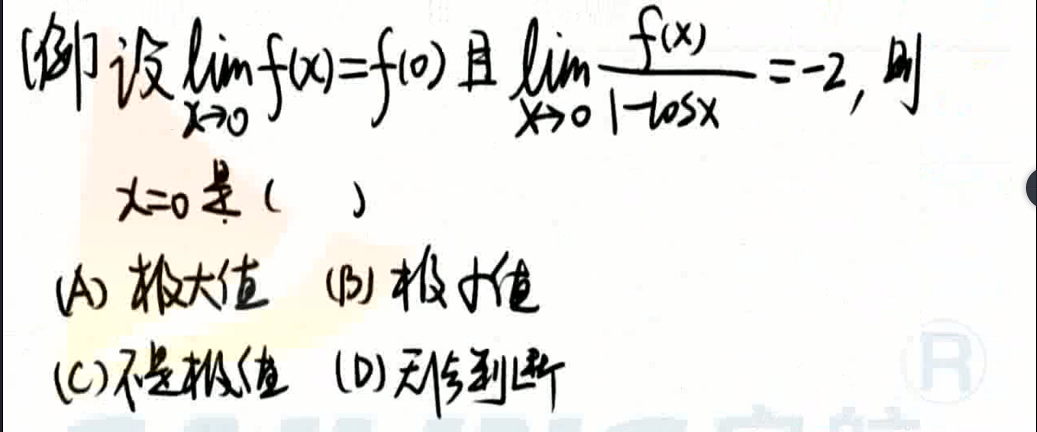 [例] 设 lim_{x→0} f(x)=f(0) 且 lim_{x→0} f(x)/(1-cosx) = -2, 则
x=0 是 (  )
(A) 极大值 (B) 极小值
(C) 不是极值 (D) 无法判断
®